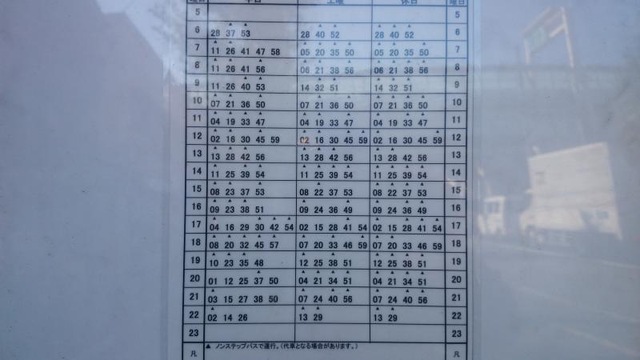 平日 土曜 休日
5 5
6 28 37 53 28 40 52 28 40 52 6
7 11 26 41 47 58 05 20 35 50 05 20 35 50 7
8 11 26 41 56 06 21 38 56 06 21 38 56 8
9 11 26 40 53 14 32 51 14 32 51 9
10 07 21 36 50 07 21 36 50 07 21 36 50 10
11 04 19 33 47 04 19 33 47 04 19 33 47 11
12 02 16 30 45 59 02 16 30 45 59 02 16 30 45 59 12
13 13 28 42 56 13 28 42 56 13 28 42 56 13
14 11 25 39 54 11 25 39 54 11 25 39 54 14
15 08 23 37 53 08 22 37 53 08 22 37 53 15
16 09 23 38 51 09 24 36 49 09 24 36 49 16
17 04 16 29 30 42 54 02 15 28 41 54 02 15 28 41 54 17
18 08 20 32 45 57 07 20 33 46 59 07 20 33 46 59 18
19 10 23 35 48 12 25 38 51 12 25 38 51 19
20 01 12 25 37 50 04 21 34 51 04 21 34 51 20
21 03 15 27 38 50 07 24 40 56 07 24 40 56 21
22 02 14 26 13 29 13 29 22
23 23
凡 ▲ ノンステップバスで運行。(代車となる場合があります。) 凡